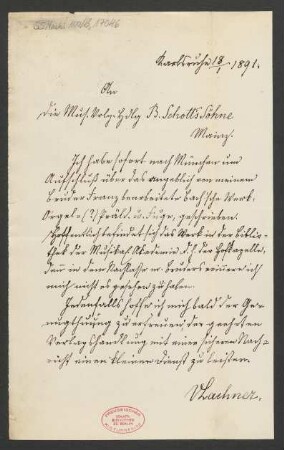 Karlsruhe 18/1 1891.
An
die Mus. Verl. Hdlg B. Schott's Söhne
Mainz.
Ich habe sofort nach München um
Aufschluß über das angeblich von meinem
Bruder Franz bearbeitete Bach'sche Werk,
Orgel (?) Präl. u. Fuge, geschrieben.
Hoffentlich befindet sich das Werk in der Biblio-
thek der Musikal. Akademie d. h. der Hofkapelle,
denn in dem Nachlasse m. Bruders erinnere ich
mich nicht es gesehen zu haben.
Jedenfalls hoffe ich mich bald der Ge-
nugthuung zu erfreuen der geehrten
Verlagshandlung mit einer sicheren Nach-
richt einen kleinen Dienst zu leisten.
VLachner.